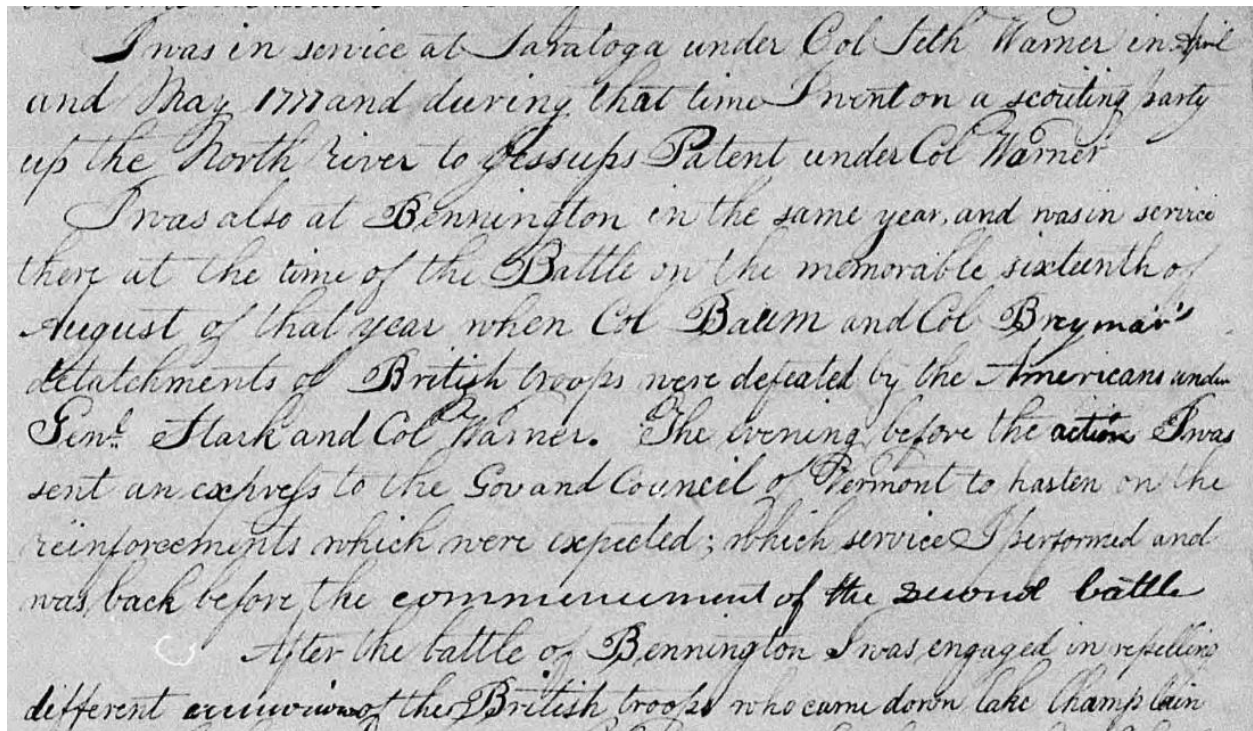 I was in service at Saratoga under Col Seth Warner in April
and May 1777 and during that time I went on a scouting party
up the North river to Jessups Patent under Col Warner
I was also at Bennington in the same year, and was in service
there at the time of the Battle on the memorable sixteenth of
August of that year when Col Baum and Col Breymar's
detatchments of British troops were defeated by the Americans under
Genl. Stark and Col Warner. The evening before the action I was
sent an express to the Gov and Council of Vermont to hasten on the
reinforcements which were expected; which service I performed and
was back before the commencement of the second battle
After the battle of Bennington I was engaged in repelling
different of the British troops who came down lake Champlain